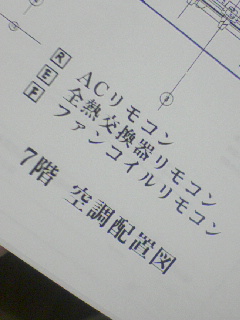 R ACリモコン
E 全熱交換器リモコン
F ファンコイルリモコン
7階 空調配置図